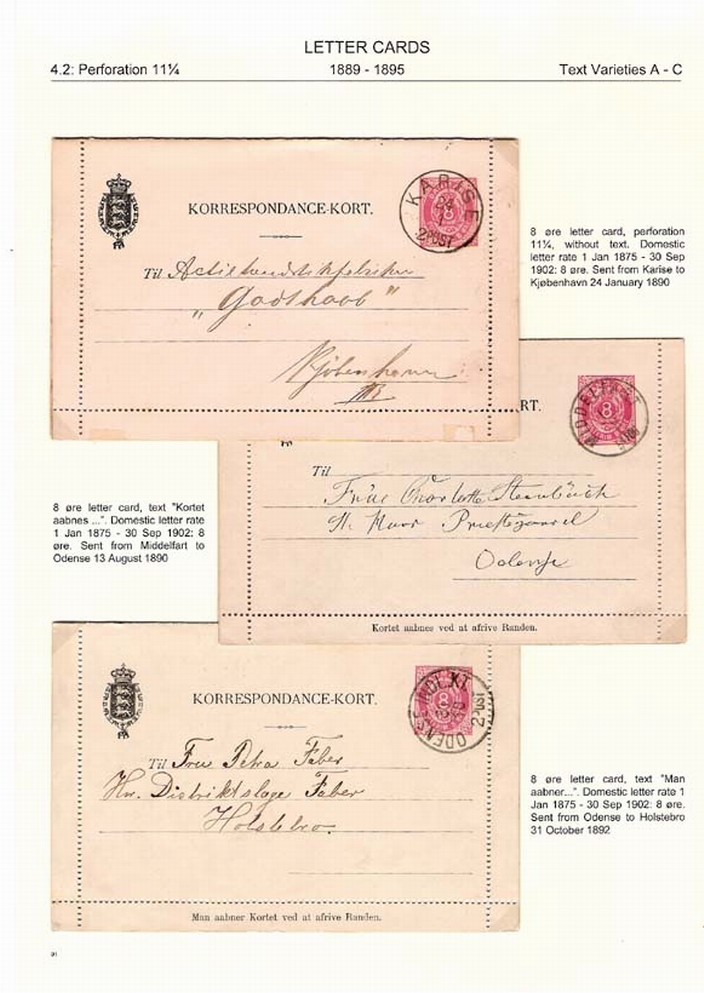 LETTER CARDS
4.2: Perforation 11¼ 1889 - 1895 Text Varieties A - C
KORRESPONDANCE-KORT.
KARISE
24
1
2POST
8
Til
"Godthaab"
Kjøbenhavn
8 øre letter card, perforation
11¼, without text. Domestic
letter rate 1 Jan 1875 - 30 Sep
1902: 8 øre. Sent from Karise to
Kjøbenhavn 24 January 1890
RT.
MIDDELFART
8
Til
Frue Charlotte
Odense
Kortet aabnes ved at afrive Randen.
8 øre letter card, text "Kortet
aabnes ...". Domestic letter rate
1 Jan 1875 - 30 Sep 1902: 8
øre. Sent from Middelfart to
Odense 13 August 1890
KORRESPONDANCE-KORT.
ODENSE
8
Til Fru Petra Faber
Hr. Distriktslæge Faber
Holstebro.
Man aabner Kortet ved at afrive Randen.
8 øre letter card, text "Man
aabner...". Domestic letter rate 1
Jan 1875 - 30 Sep 1902: 8 øre.
Sent from Odense to Holstebro
31 October 1892